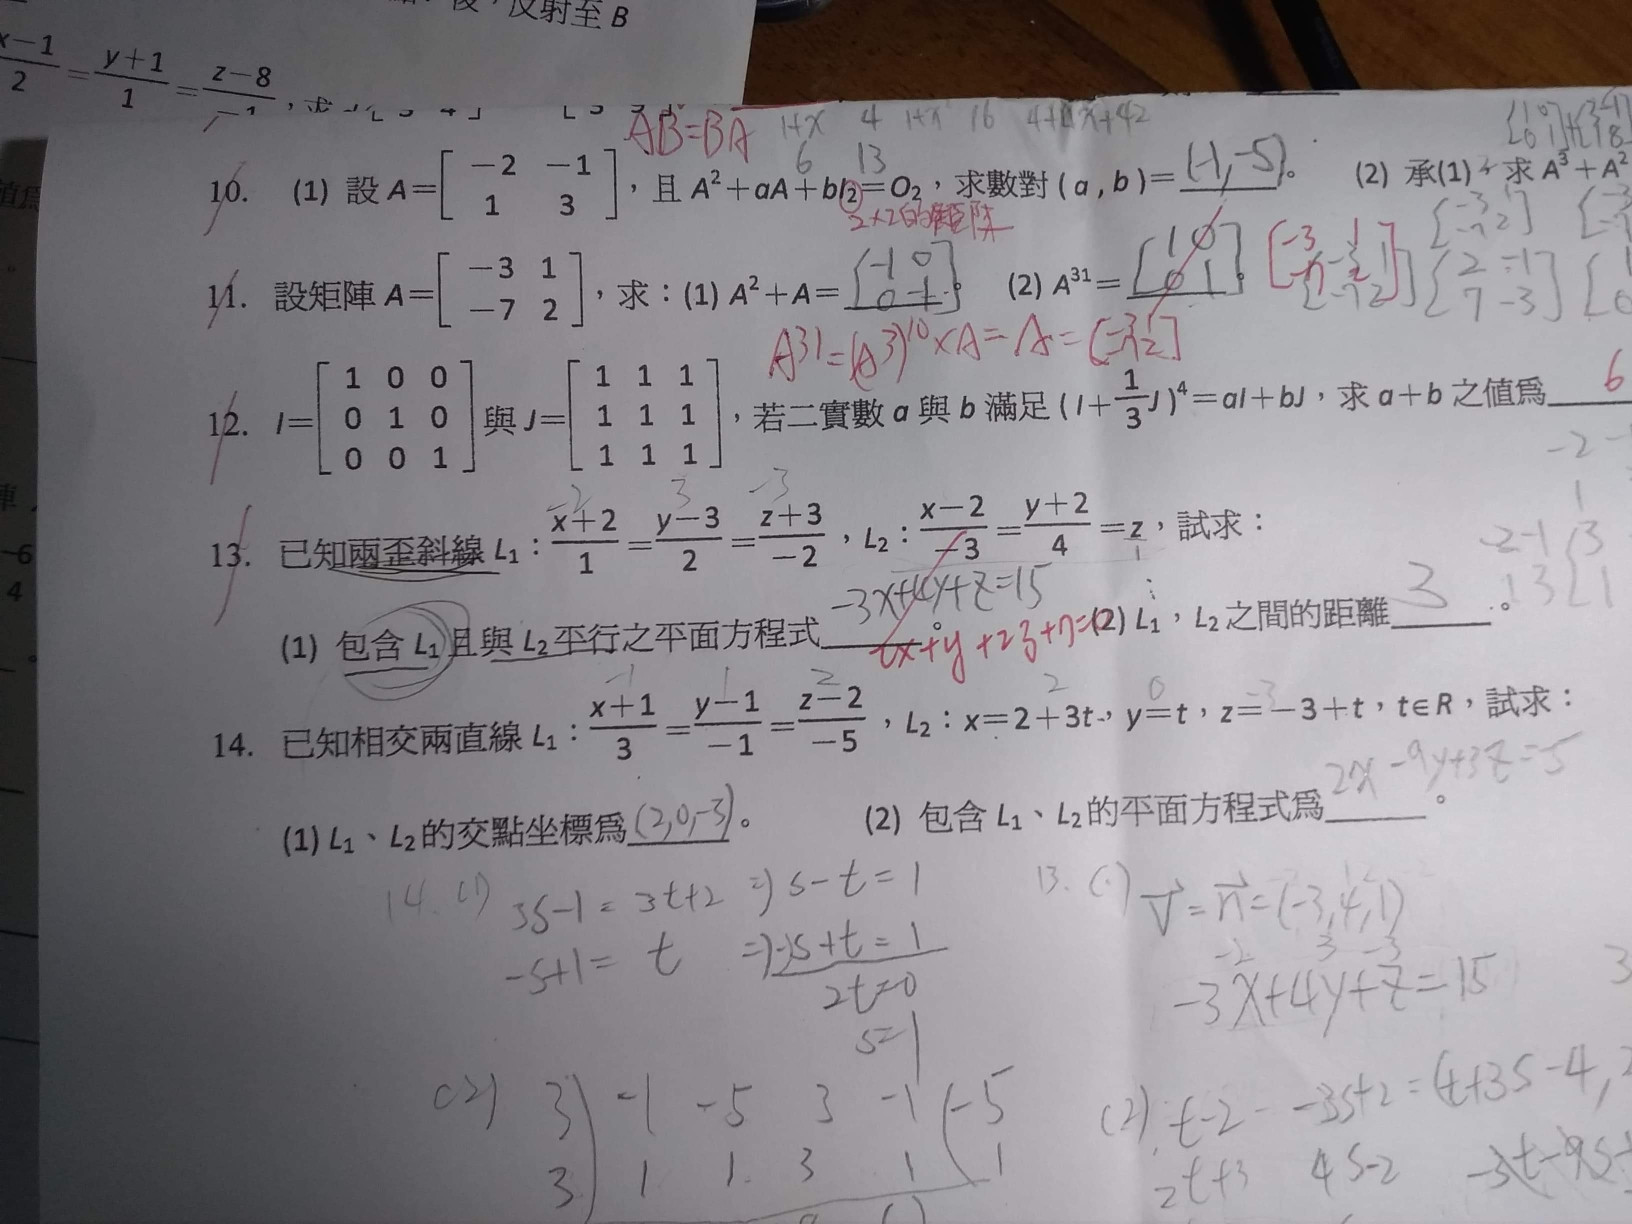 後，反射至 B
x−1/2 = y+1/1 = z−8/−1，求
AB=BA 1+x 4 1+x 16
6 13
10. (1) 設 A=[−2 −1; 1 3]，且 A²+aA+bI₂=O₂，求數對 (a , b)=(-1,-5)。 (2) 承(1)，求 A³+A²
2×2的矩陣
11. 設矩陣 A=[−3 1; −7 2]，求：(1) A²+A=[-1 0; 0 -1]。 (2) A³¹=[1 0; 0 1]。
[2 -1; 7 -3]
A³¹=(A³)¹⁰×A=A=[-3 1; -7 2]
12. I=[1 0 0; 0 1 0; 0 0 1] 與 J=[1 1 1; 1 1 1; 1 1 1]，若二實數 a 與 b 滿足 (I+1/3 J)⁴=aI+bJ，求 a+b 之值為 6
-2 3 -3
13. 已知兩歪斜線 L₁：x+2/1 = y−3/2 = z+3/−2，L₂：x−2/−3 = y+2/4 = z，試求：
-3x+4y+z=15
(1) 包含 L₁ 且與 L₂ 平行之平面方程式。 (2) L₁，L₂ 之間的距離 3。
-1 1 2 2 0 -3
14. 已知相交兩直線 L₁：x+1/3 = y−1/−1 = z−2/−5，L₂：x=2+3t，y=t，z=−3+t，t∈R，試求：
2x-9y+3z=-5
(1) L₁、L₂ 的交點坐標為(2,0,-3)。 (2) 包含 L₁、L₂ 的平面方程式為。
14. (1) 3s-1=3t+2 ⇒ s-t=1
-s+1=t
2t=0
s=1
13. (1) v=n=(-3,4,1)
-2 3 -3
-3x+4y+z=15
(2) 3 -1 -5 3 -1 -5
3 1 1 3 1 1
(2) t-2 -3s+2=(t+3s-4,
2t+3 4s-2